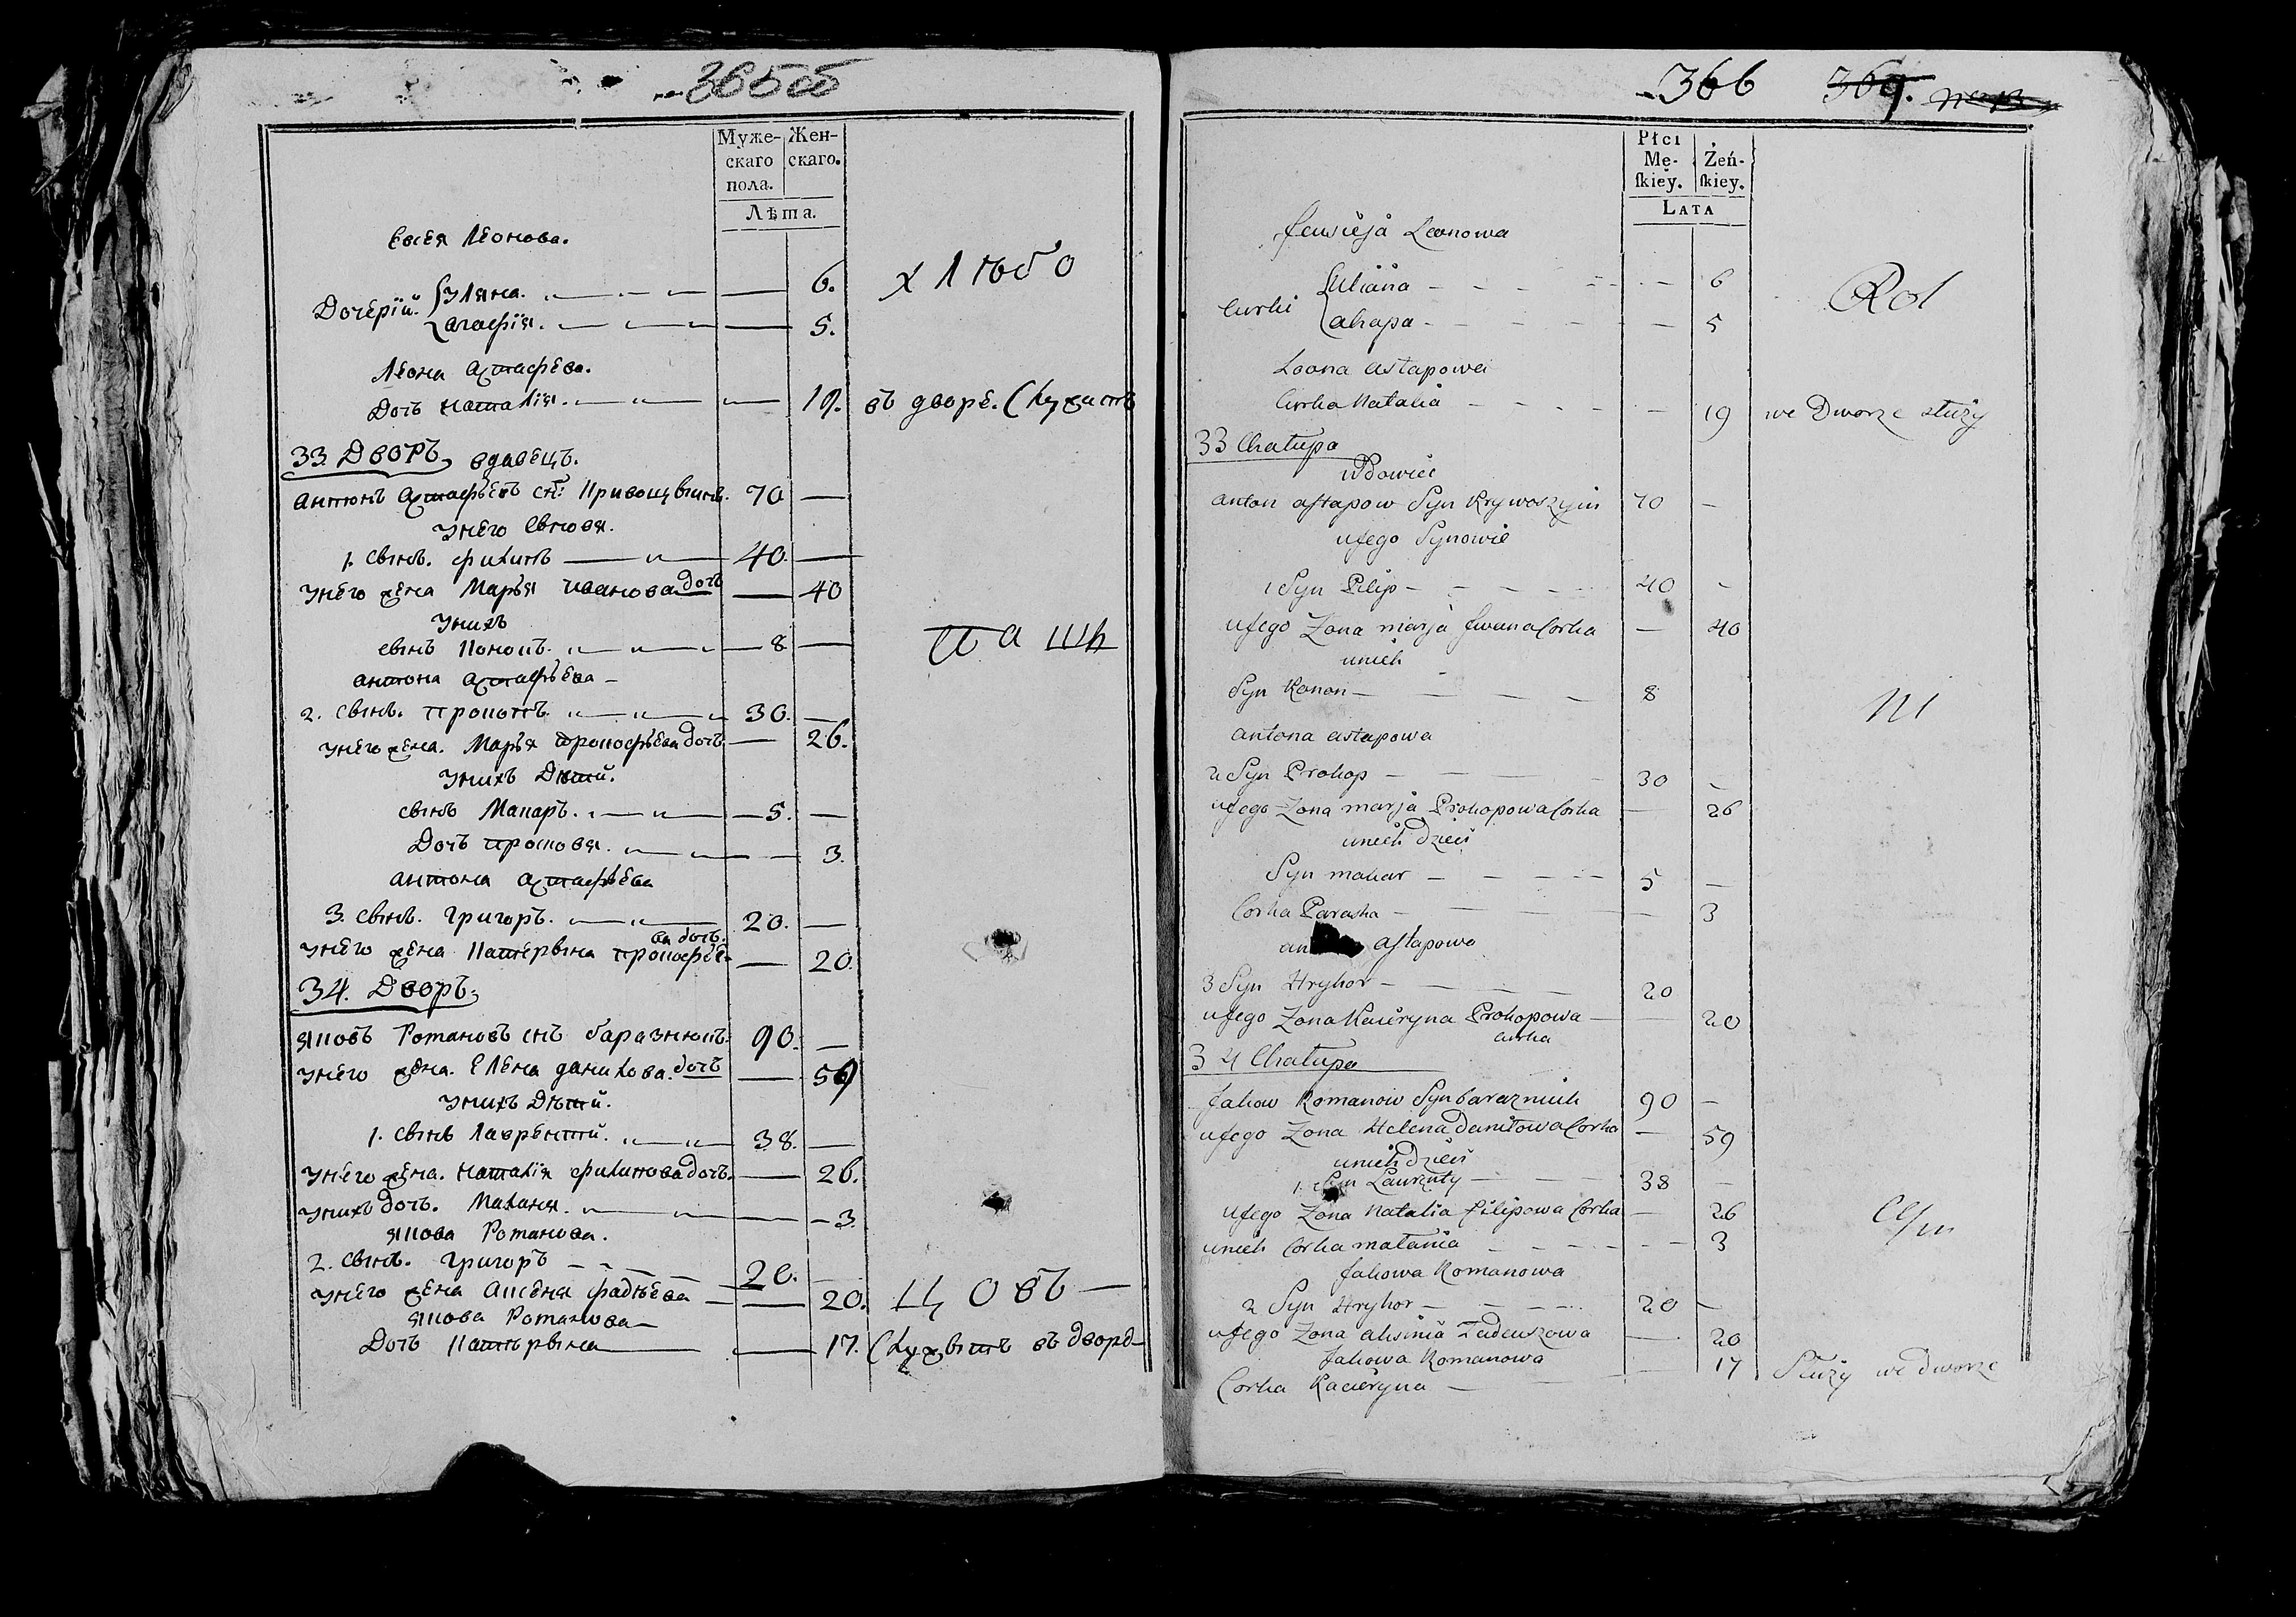 365об
Муже-
скаго
пола.
Жен-
скаго.
Лѣта.
Евсея Леонова.
Дочерїй. Уляна. 6.
агафїя. 5.
хлѣбо
Леона астафьева.
Дочь наталія. 19. въ дворе. служитъ
33. Дворъ, вдавецъ.
антонъ астафьевъ снъ Кривощынъ. 70 —
унего Сынове.
1. сынъ. филипъ — 40. —
унего жена Марья иванова дочь — 40
унихъ
сынъ Кононъ. — 8 —
пашь
антона астафьева —
2. сынъ. прокопъ. 30. —
унего жена. Марья прокофьева дочь — 26.
унихъ Дѣтей.
сынъ Макаръ. — 5. —
Дочь просковя. — 3.
антона астафьева
3. сынъ. григоръ. 20. —
унего жена Катерына прокофьева дочь. — 20.
34. Дворъ.
яковъ Романовъ снъ баразнюкъ. 90. —
унего жена. Елена данилова. дочь — 59
унихъ Дѣтей.
1. сынъ Лаврентий. 38. —
унего жена. наталія филипова дочь. — 26.
унихъ дочь. Маланя. — 3.
якова Романова.
2. сынъ. григоръ 20. —
унего жена аксеня фадѣева — 20.
цовъ —
якова Романова —
Дочь Катерына — 17. служытъ въ дворѣ —
366 369.
Płci
Mę-
ſkiey.
Żeń-
ſkiey.
LATA
Jewsieja Leonowa
Curki Uliana 6
ahapa 5
Rol
Leona astapowa
Curka Natalia — 19 we Dworze służy
33 Chałupa
Wdowiec
anton aſtapow Syn Krywoszyin 70 —
uJego Synowie
1 Syn Pilip — 40 —
uJego Zona marja Jwana Corka — 40
unich
Syn Konon — 8
ni
antona astapowa
2 Syn Prokop — 30 —
uJego Zona marja Prokopowa Corka — 26
unich Dzieci
Syn makar — 5 —
Corka Paraska — 3
an aſtapowa
3 Syn Hryhor — 20
uJego Zona Kacieryna Prokopowa — 20
curka
34 Chałupa
Jakow Romanow Syn barazniuk 90 —
uJego Zona Helena Daniłowa Corka — 59
unich dzieci
1. Syn Laurenty — 38 —
uJego Zona Natalia Filipowa Corka — 26
unich Corka matania — 3
Jakowa Romanowa
2 Syn Hryhor — 20 —
uJego Zona aksinia Tadeuszowa — 20
Jakowa Romanowa
Corka Kacieryna — 17 Służy we dworze